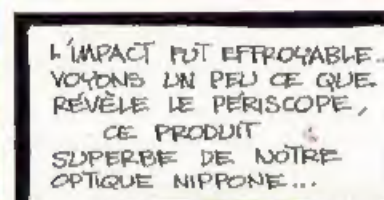 L'IMPACT FUT EFFROYABLE..
VOYONS UN PEU CE QUE
RÉVÈLE LE PÉRISCOPE,
CE PRODUIT
SUPERBE DE NOTRE
OPTIQUE NIPPONE...